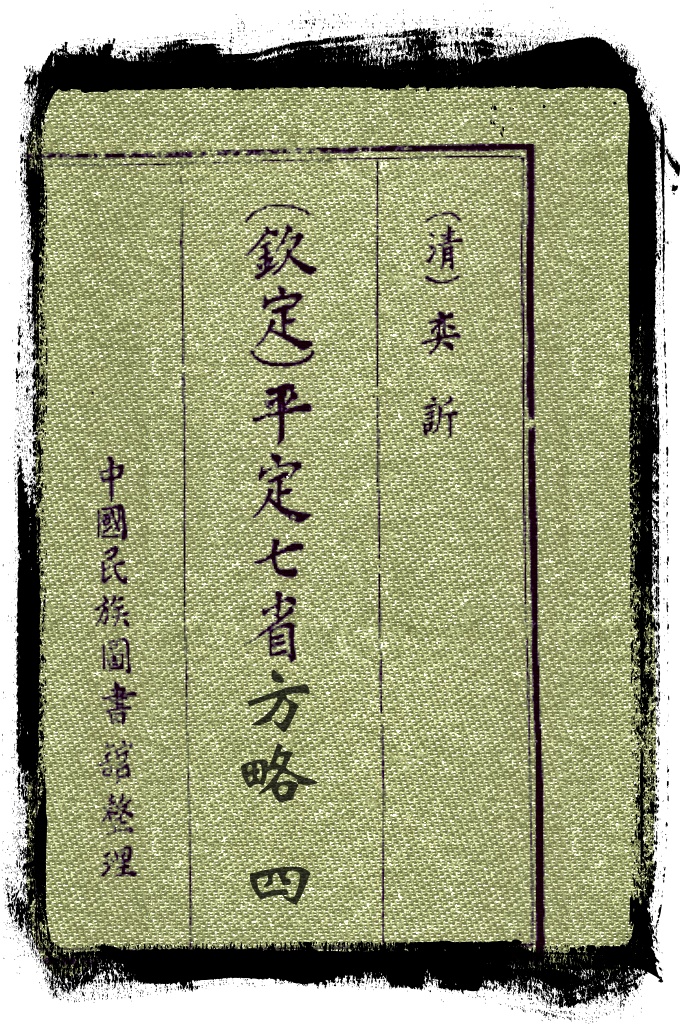 （清）奕訢
（欽定）平定七省方略 四
中國民族圖書館整理